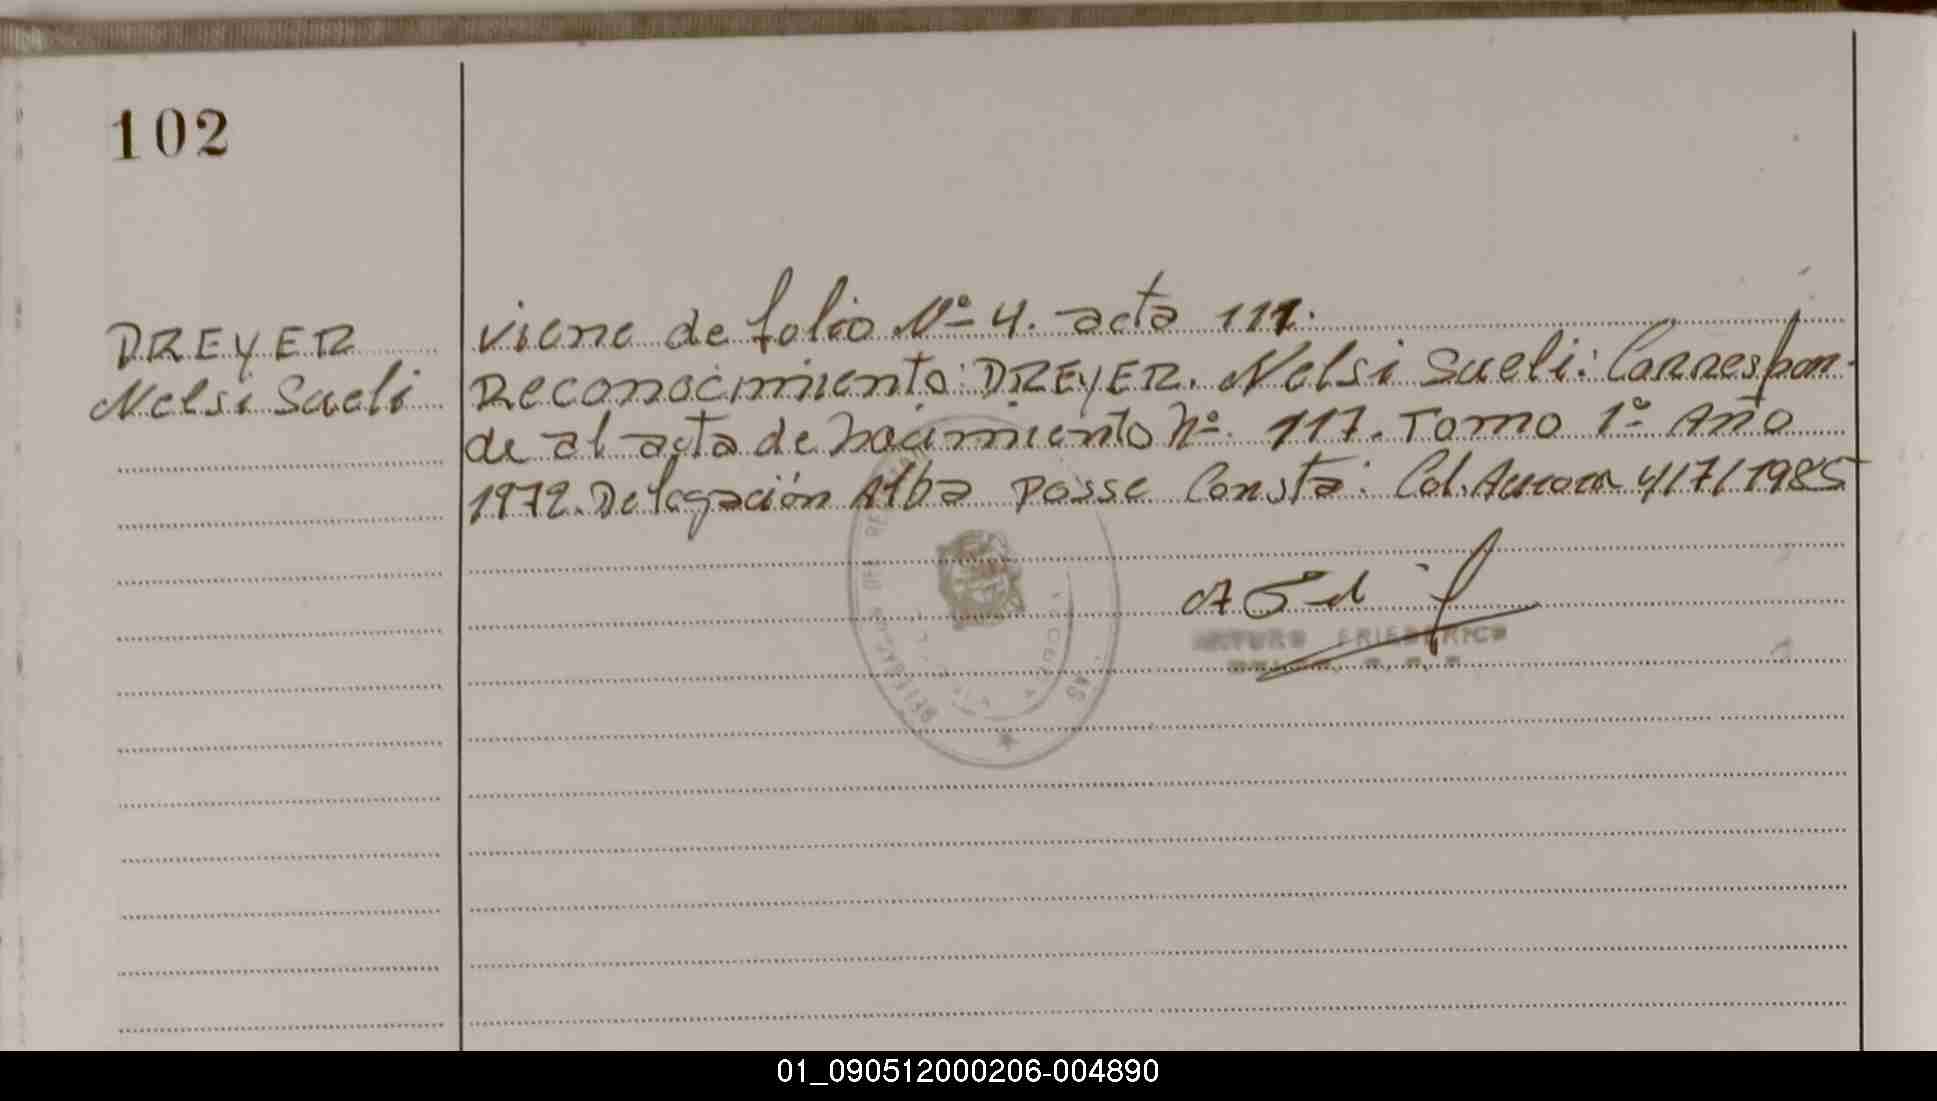 102
DREYER
Nelsi Sueli
viene de folio Nº 4. acta 111.
Reconocimiento: DREYER. Nelsi Sueli: Correspon-
de al acta de nacimiento Nº. 117. Tomo 1º Año
1972. Delegación Alba Posse Consta: Col. Aurora 4/7/1985
ARTURO FRIEDERICO
01_090512000206-004890